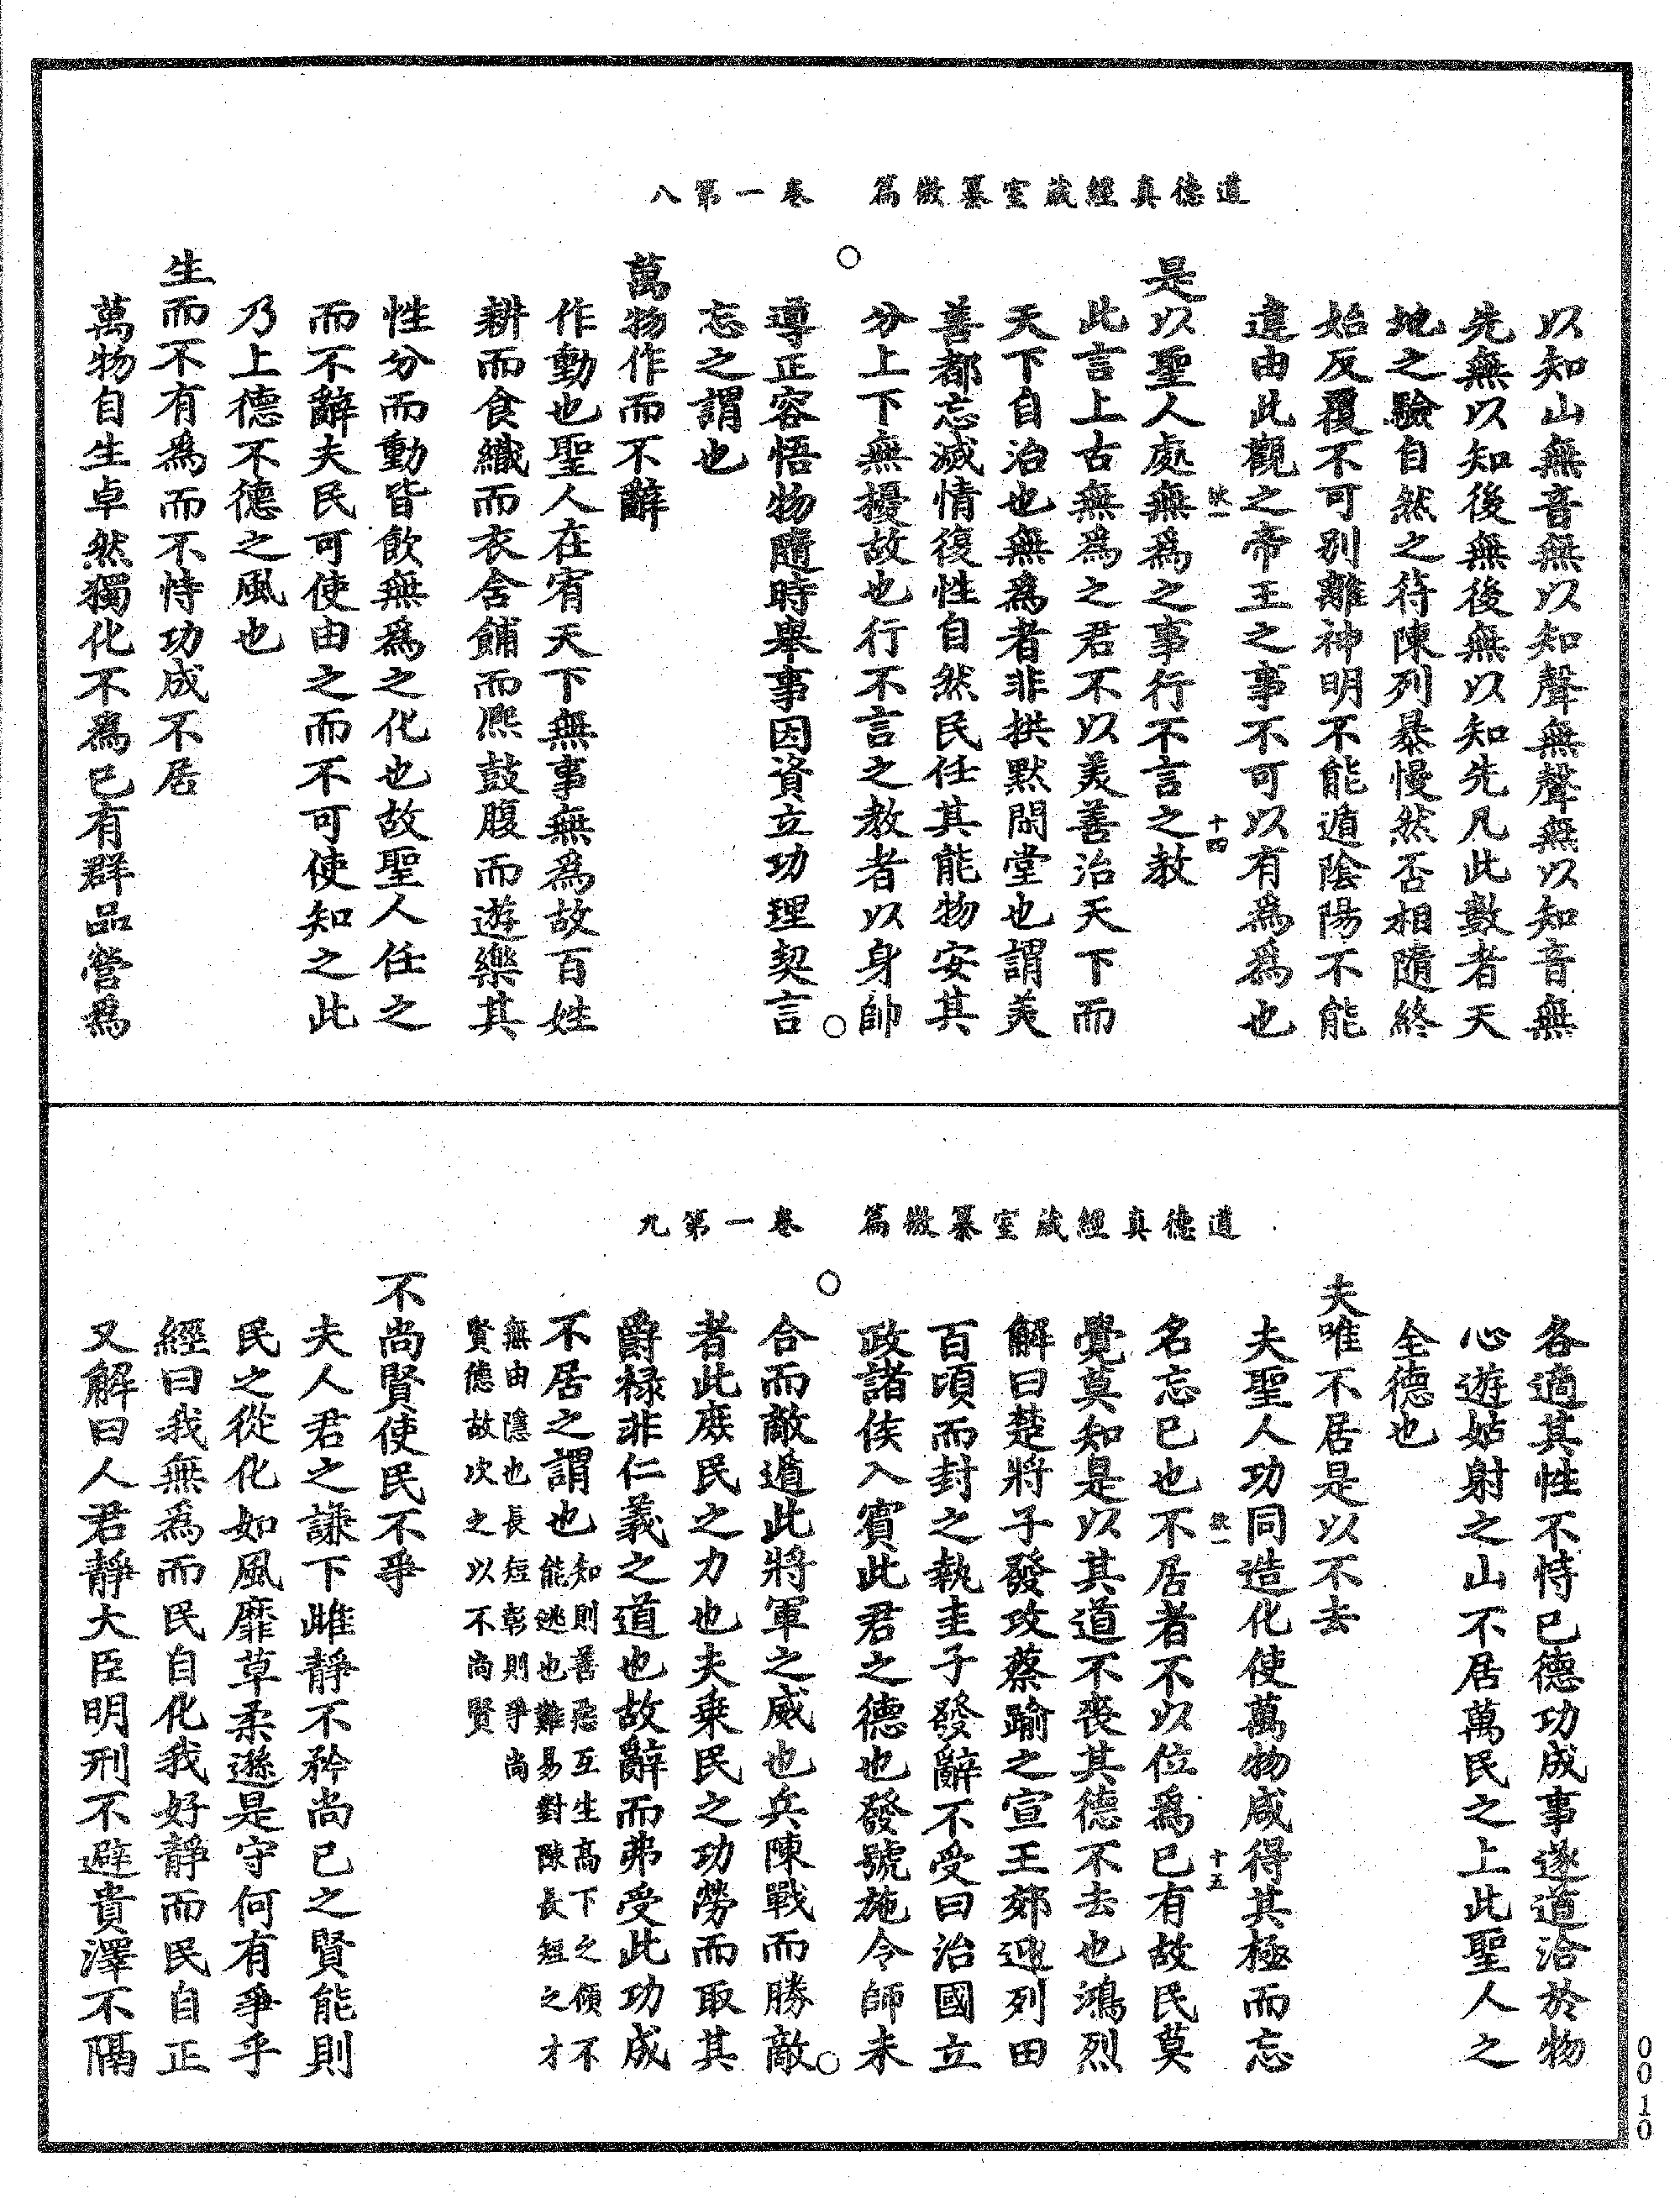 道德真經藏室纂微篇　卷一第八
以知山無音無以知聲無聲無以知音無
先無以知後無後無以知先凡此數者天
地之驗自然之符陳列暴慢然否相隨終
始反覆不可別離神明不能遁陰陽不能
違由此觀之帝王之事不可以有為為也
十四
是以聖人處無為之事行不言之教
此言上古無為之君不以美善治天下而
天下自治也無為者非拱默閑堂也謂美
善都忘滅情復性自然民任其能物安其
分上下無擾故也行不言之教者以身帥
導正容悟物隨時舉事因資立功理契言
忘之謂也
萬物作而不辭
作動也聖人在宥天下無事無為故百姓
耕而食織而衣含餔而熈鼓腹而遊樂其
性分而動皆飲無為之化也故聖人任之
而不辭夫民可使由之而不可使知之此
乃上德不德之風也
生而不有為而不恃功成不居
萬物自生卓然獨化不為已有群品營為
道德真經藏室纂微篇　卷一第九
各適其性不恃已德功成事遂道洽於物
心遊姑射之山不居萬民之上此聖人之
全德也
夫唯不居是以不去
夫聖人功同造化使萬物咸得其極而忘
十五
名忘已也不居者不以位為已有故民莫
覺莫知是以其道不喪其德不去也鴻烈
解曰楚將子發攻蔡踰之宣王郊迎列田
百頃而封之執圭子發辭不受曰治國立
政諸侯入賓此君之德也發號施令師未
合而敵遁此將軍之威也兵陳戰而勝敵
者此庶民之力也夫乗民之功勞而取其
爵祿非仁義之道也故辭而弗受此功成
不居之謂也知則善惡互生高下之傾不
能逃也難易對陳長短之才
無由隱也長短彰則爭尚
賢德故次之以不尚賢
不尚賢使民不爭
夫人君之謙下雌靜不矜尚已之賢能則
民之從化如風靡草柔遜是守何有爭乎
經曰我無為而民自化我好靜而民自正
又解曰人君靜大臣明刑不避貴澤不隔
0010